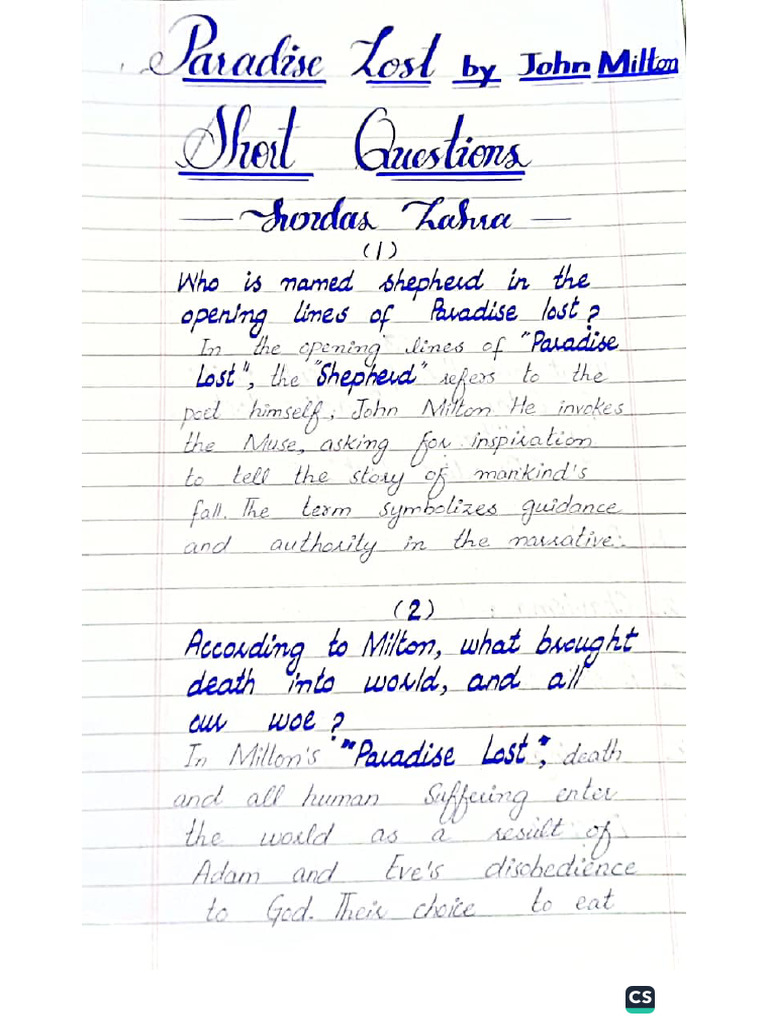 Paradise Lost by John Milton
Short Questions
Zahra
(1)
Who is named shepherd in the
opening lines of Paradise lost?
In the opening lines of "Paradise
Lost", the "Shepherd" refers to the
poet himself, John Milton. He invokes
the Muse, asking for inspiration
to tell the story of mankind's
fall. The term symbolizes guidance
and authority in the narrative.
(2)
According to Milton, what brought
death into world, and all
our woe?
In Milton's "Paradise Lost", death
and all human Suffering enter
the world as a result of
Adam and Eve's disobedience
to God. Their choice to eat
CS